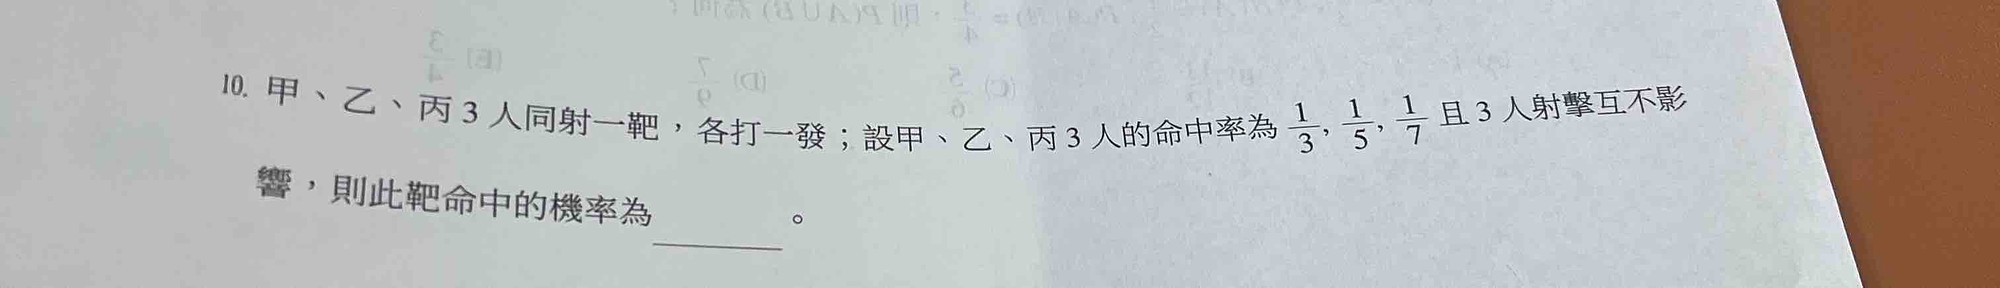 10. 甲、乙、丙 3 人同射一靶，各打一發；設甲、乙、丙 3 人的命中率為 1/3, 1/5, 1/7 且 3 人射擊互不影
響，則此靶命中的機率為＿＿＿＿。